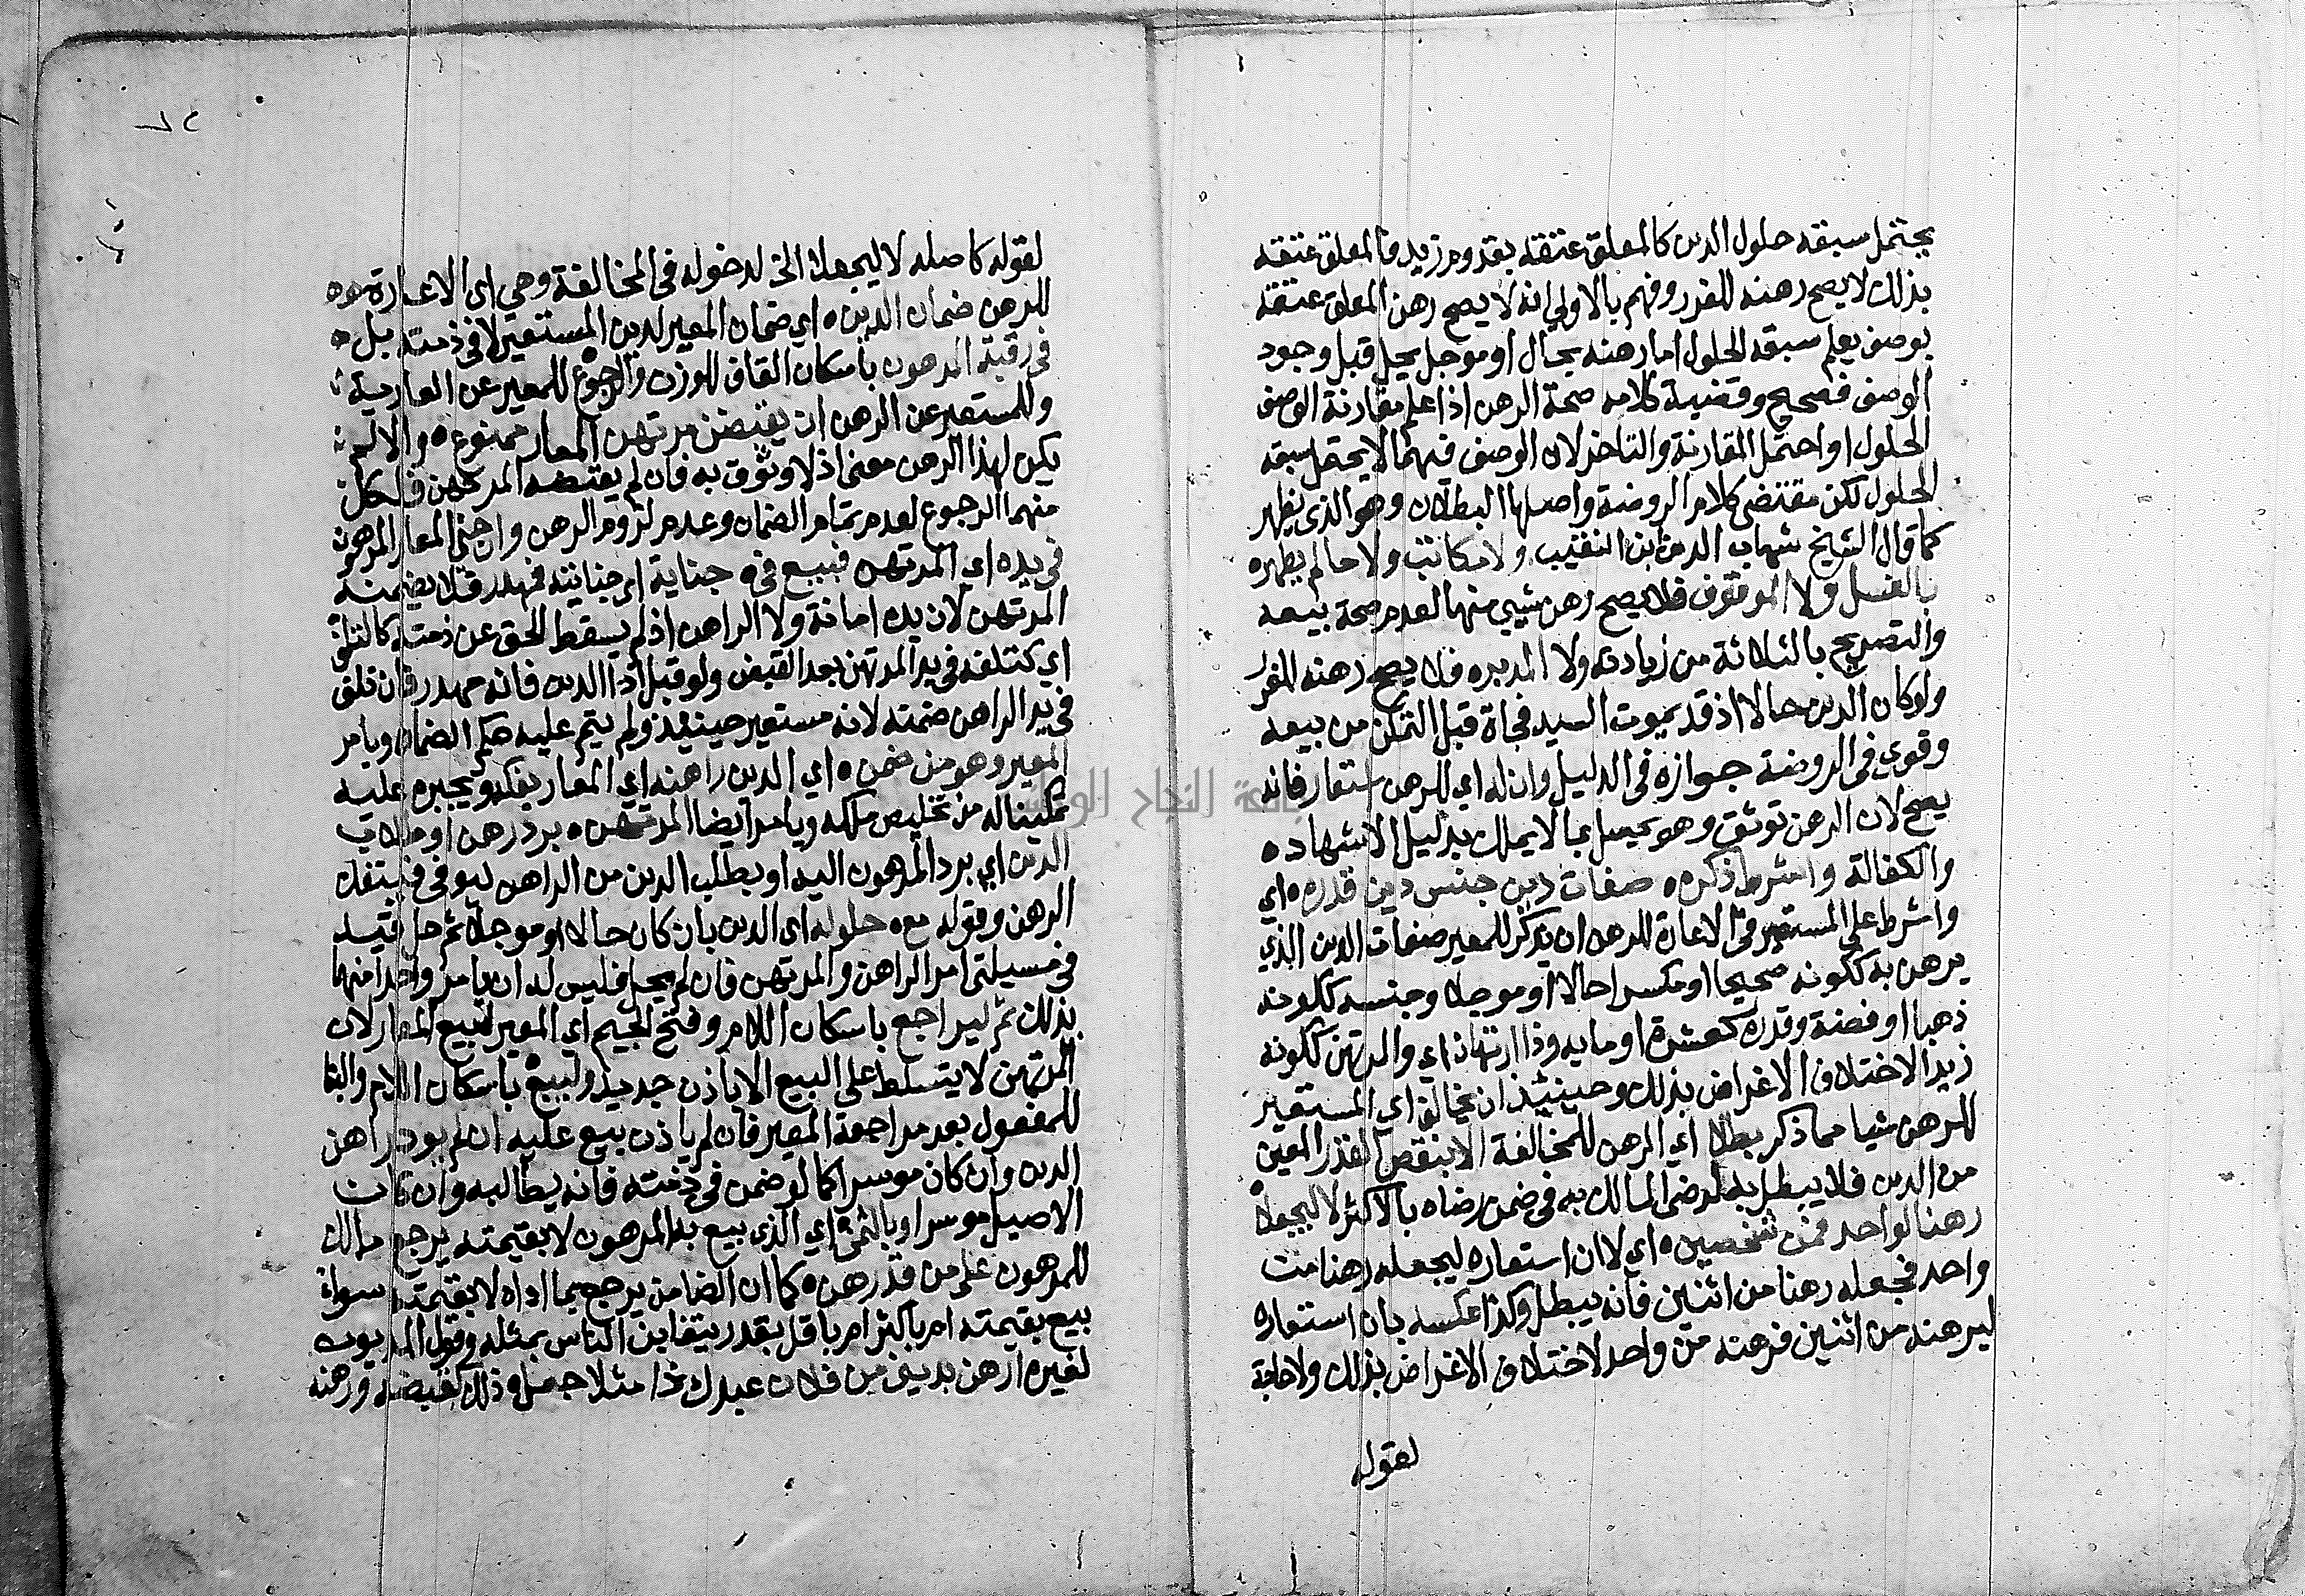 يحتمل سبقه حلول الدين كالمعلق عتقه بقدوم زيد فالمعلق عتقه
بذلك لا يصح رهنه للغرر وفهم بالاولي انه لا يصح رهن المعلق عتقه
بوصف يعلم سبقه الحلول اما رهنه بحال او موجل يحل قبل وجود
الوصف فصحيح وقضية كلامه صحة الرهن اذا علم مقارنة الوصف
الحلول او احتمل المقارنة والتاخر لان الوصف فيهما لا يحتمل سبقه
الحلول لكن مقتضى كلام الروضة واصلها البطلان وهو الذي يظهر
كما قال الشيخ شهاب الدين ابن النقيب ولا مكاتب ولا ما لم يطهره
بالغسل ولا الموقوف فلا يصح رهن شيي منها لعدم صحة بيعه
والتصريح بالثلاثة من زيادته ولا المدبره فلا يصح رهنه للغرر
ولو كان الدين حالا اذ قد يموت السيد فجاة قبل التمكن من بيعه
وقوي في الروضة جوازه في الدليل وان له اي للرهن استعار فانه
يصح لان الرهن توثق وهو يحصل بما لا يملك بدليل الاشهاد ه
والكفالة واشرط ذكره صفات دين جنس دين قدره اي
واشرط علي المستعير في الاعارة للرهن ان يذكر للمعير صفات الدين الذي
يرهن به ككونه صحيحا او مكسرا حالا او موجلا وجنسه ككونه
ذهبا او فضة وقدره كعشرة او مايه وذا ارتهان اي والمرتهن ككونه
زيد الاختلاف الاغراض بذلك وحينئذ ان يخالف اي المستعير
للرهن شيا مما ذكر بطلا اي الرهن للمخالفة الا بنقص القدر المعين
من الدين فلا يبطل به لرضى المالك به في ضمن رضاه بالاكثر لا ليجعلا
رهنا لواحد فمن شخصين ه اي لا ان استعاره ليجعله رهنا من
واحد فجعله رهنا من اثنين فانه يبطل وكذا عكسه بان استعاره
ليرهنه من اثنين فرهنه من واحد لاختلاف الاغراض بذلك ولا حاجة
لقوله
لقوله كاصله لا ليجعلا الخ لدخوله في المخالفة وهي اي الاعارة
للرهن ضمان الدين ه اي ضمان المعير لدين المستعير لا في ذمته بل ه
في رقبة المرهون باسكان القاف للوزن والرجوع للمعير عن العارية
وللمستعير عن الرهن ان يقبضن مرتهن المعار ممنوع ه والا لم
يكن لهذا الرهن معنى اذ لا وثوق به فان لم يقبضه المرتهن فلكل
منهما الرجوع لعدم تمام الضمان وعدم لزوم الرهن وان جنى المعار المرهون
في يده اي المرتهن فبيع في ه جناية اي جنايته فهدر فلا يضمنه
المرتهن لان يده امانة ولا الراهن اذ لم يسقط الحق عن ذمته كالتلف
اي كتلفه في يد المرتهن بعد القبض ولو قبل اذا الدين فانه مهدر فان تلف
في يد الراهن ضمنه لانه مستعير حينئذ ولم يتم عليه حكم الضمان ويامر
المعير وهو من ضمن ه اي الدين راهنه اي المعار بفكه ويجبره عليه
تمكينا له من تخليص ملكه ويامر ايضا المرتهن ه برد رهن او طلاب
الدين اي برد المرهون اليه او بطلب الدين من الراهن ليوفى فينفك
الرهن وقوله مع ه حلوله اي الدين بان كان حالا او موجلا ثم حل قيد
في مسيلتى امر الراهن والمرتهن فان لم يحل فليس له ان يامر واحدا منهما
بذلك ثم ليراجع باسكان اللام وفتح الجيم اي المعير لبيع المعار لان
المرتهن لا يتسلط على البيع الا باذن جديد وليبع باسكان اللام والبنا
للمفعول بعد مراجعة المعير فان لم ياذن بيع عليه ان لم يود راهن
الدين وان كان موسرا كما لو ضمن في ذمته فانه يطالبه وان كان
الاصيل موسرا وبالثمن اي الذي بيع به المرهون لا بقيمته يرجع مالك
للمرهون على من قد رهن ه كما ان الضامن يرجع بما اداه لا بقيمته سواء
بيع بقيمته ام باكثر ام باقل بقدر يتغابن الناس بمثله وقول المديون
لغيره ارهن بديني من فلان عبدك ذا مثلا جعل وذلك كقبضه ورهنه